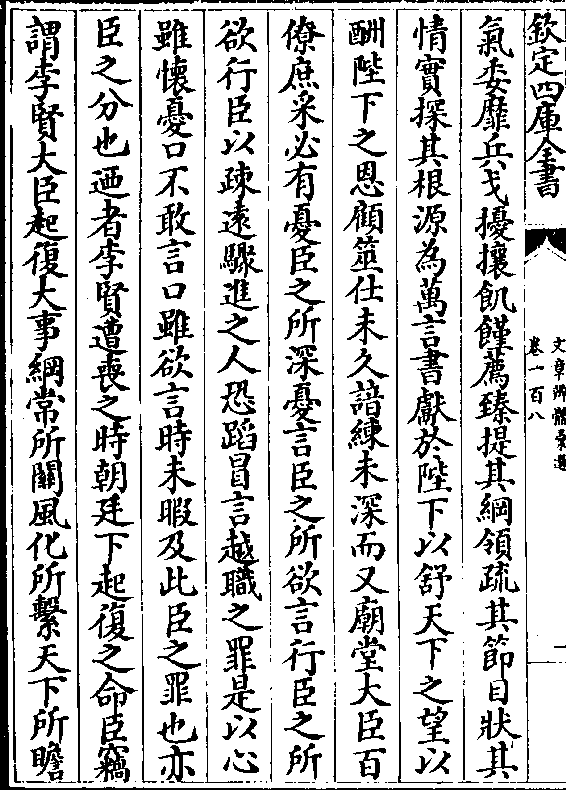 欽定四庫全書
文章辨體彙選
卷一百八
一
氣委靡兵戈擾攘飢饉薦臻提其綱領疏其節目狀其
情實探其根源為萬言書獻於陛下以舒天下之望以
酬陛下之恩顧筮仕未久諳練未深而又廟堂大臣百
僚庶采必有憂臣之所深憂言臣之所欲言行臣之所
欲行臣以疎遠驟進之人恐蹈冒言越職之罪是以心
雖懷憂口不敢言口雖欲言時未暇及此臣之罪也亦
臣之分也迺者李賢遭喪之時朝廷下起復之命臣竊
謂李賢大臣起復大事綱常所關風化所繫天下所瞻